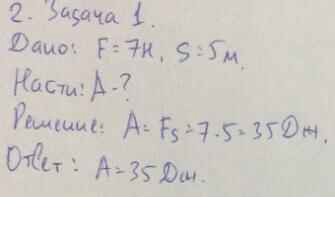 2. Задача 1.
Дано: F = 7Н, S = 5м.
Насти: A - ?
Решение: A = Fs = 7·5 = 35 Дж.
Ответ: A = 35 Дж.